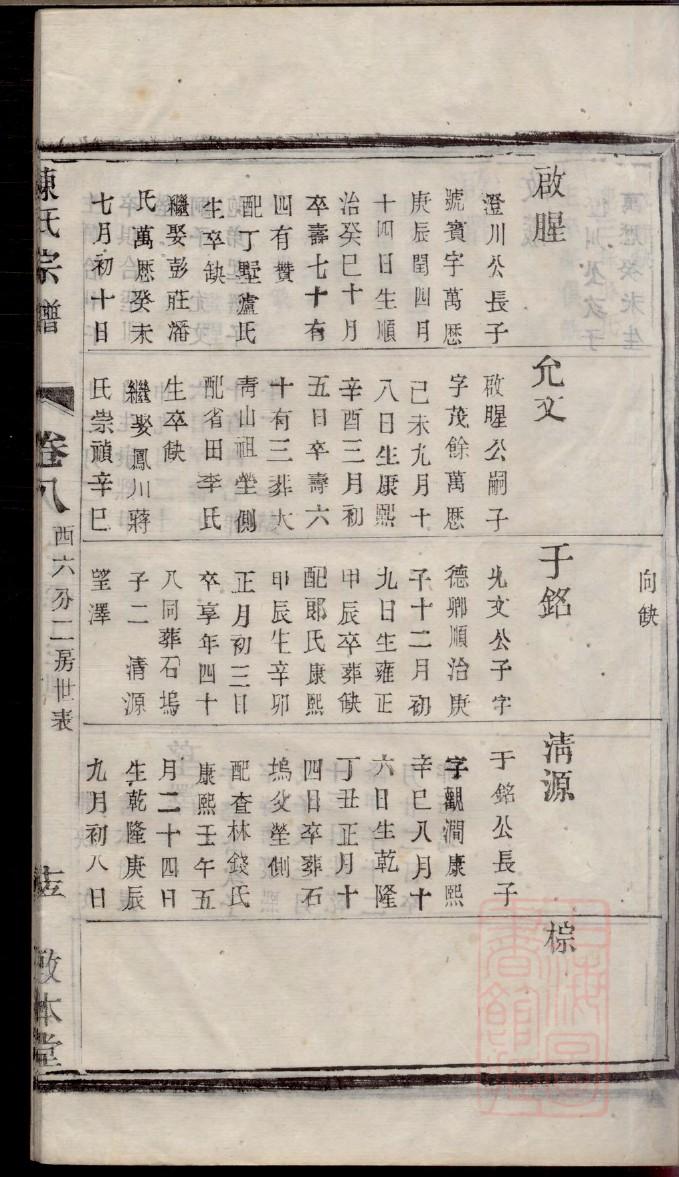 向缺
啟腥
澄川公長子
號賓宇萬歷
庚辰閏四月
十四日生順
治癸巳十月
卒壽七十有
四有贊
配丁墅盧氏
生卒缺
繼娶彭莊潘
氏萬歷癸未
七月初十日
允文
啟腥公嗣子
字茂餘萬歷
己未九月十
八日生康熙
辛酉三月初
五日卒壽六
十有三葬大
青山祖塋側
配省田李氏
生卒缺
繼娶鳳川蔣
氏崇禎辛巳
于銘
允文公子字
德卿順治庚
子十二月初
九日生雍正
甲辰卒葬缺
配郎氏康熙
甲辰生辛卯
正月初三日
卒享年四十
八同葬石塢
子二 清源
望澤
清源
于銘公長子
字觀澗康熙
辛巳八月十
六日生乾隆
丁丑正月十
四日卒葬石
塢父塋側
配查林錢氏
康熙壬午五
月二十四日
生乾隆庚辰
九月初八日
棕
陳氏宗譜 卷八 西六分二房世表 敦本堂